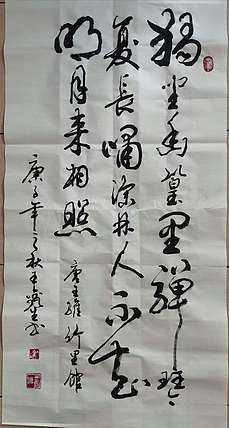 獨坐幽篁里彈琴
复長嘯深林人不知
明月来相照
唐王維竹里館
庚子年之秋王书